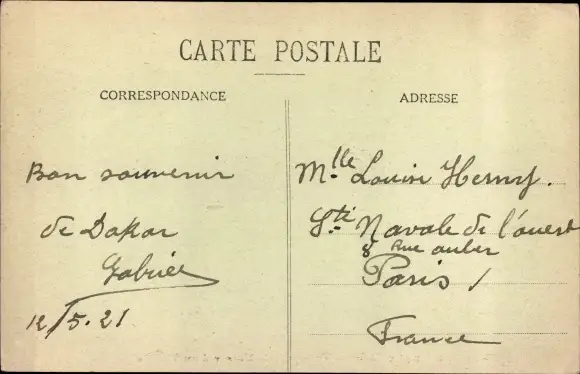 CARTE POSTALE
CORRESPONDANCE
ADRESSE
Bon souvenir
de Dakar
Gabriel
12/5.21
Mlle Louise
Sté Navale de l'ouest
8 Rue auber
Paris
France